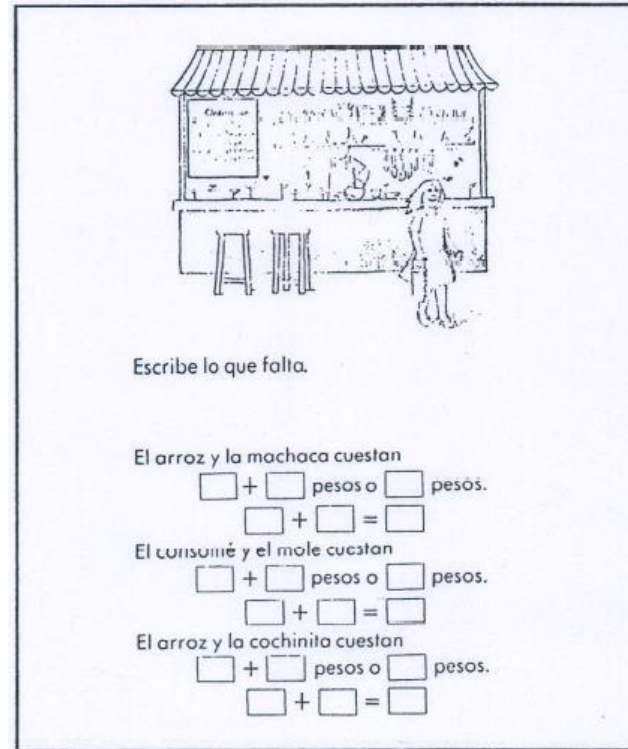 Escribe lo que falta.
El arroz y la machaca cuestan
+ pesos o pesos.
+ =
El consomé y el mole cuestan
+ pesos o pesos.
+ =
El arroz y la cochinita cuestan
+ pesos o pesos.
+ =